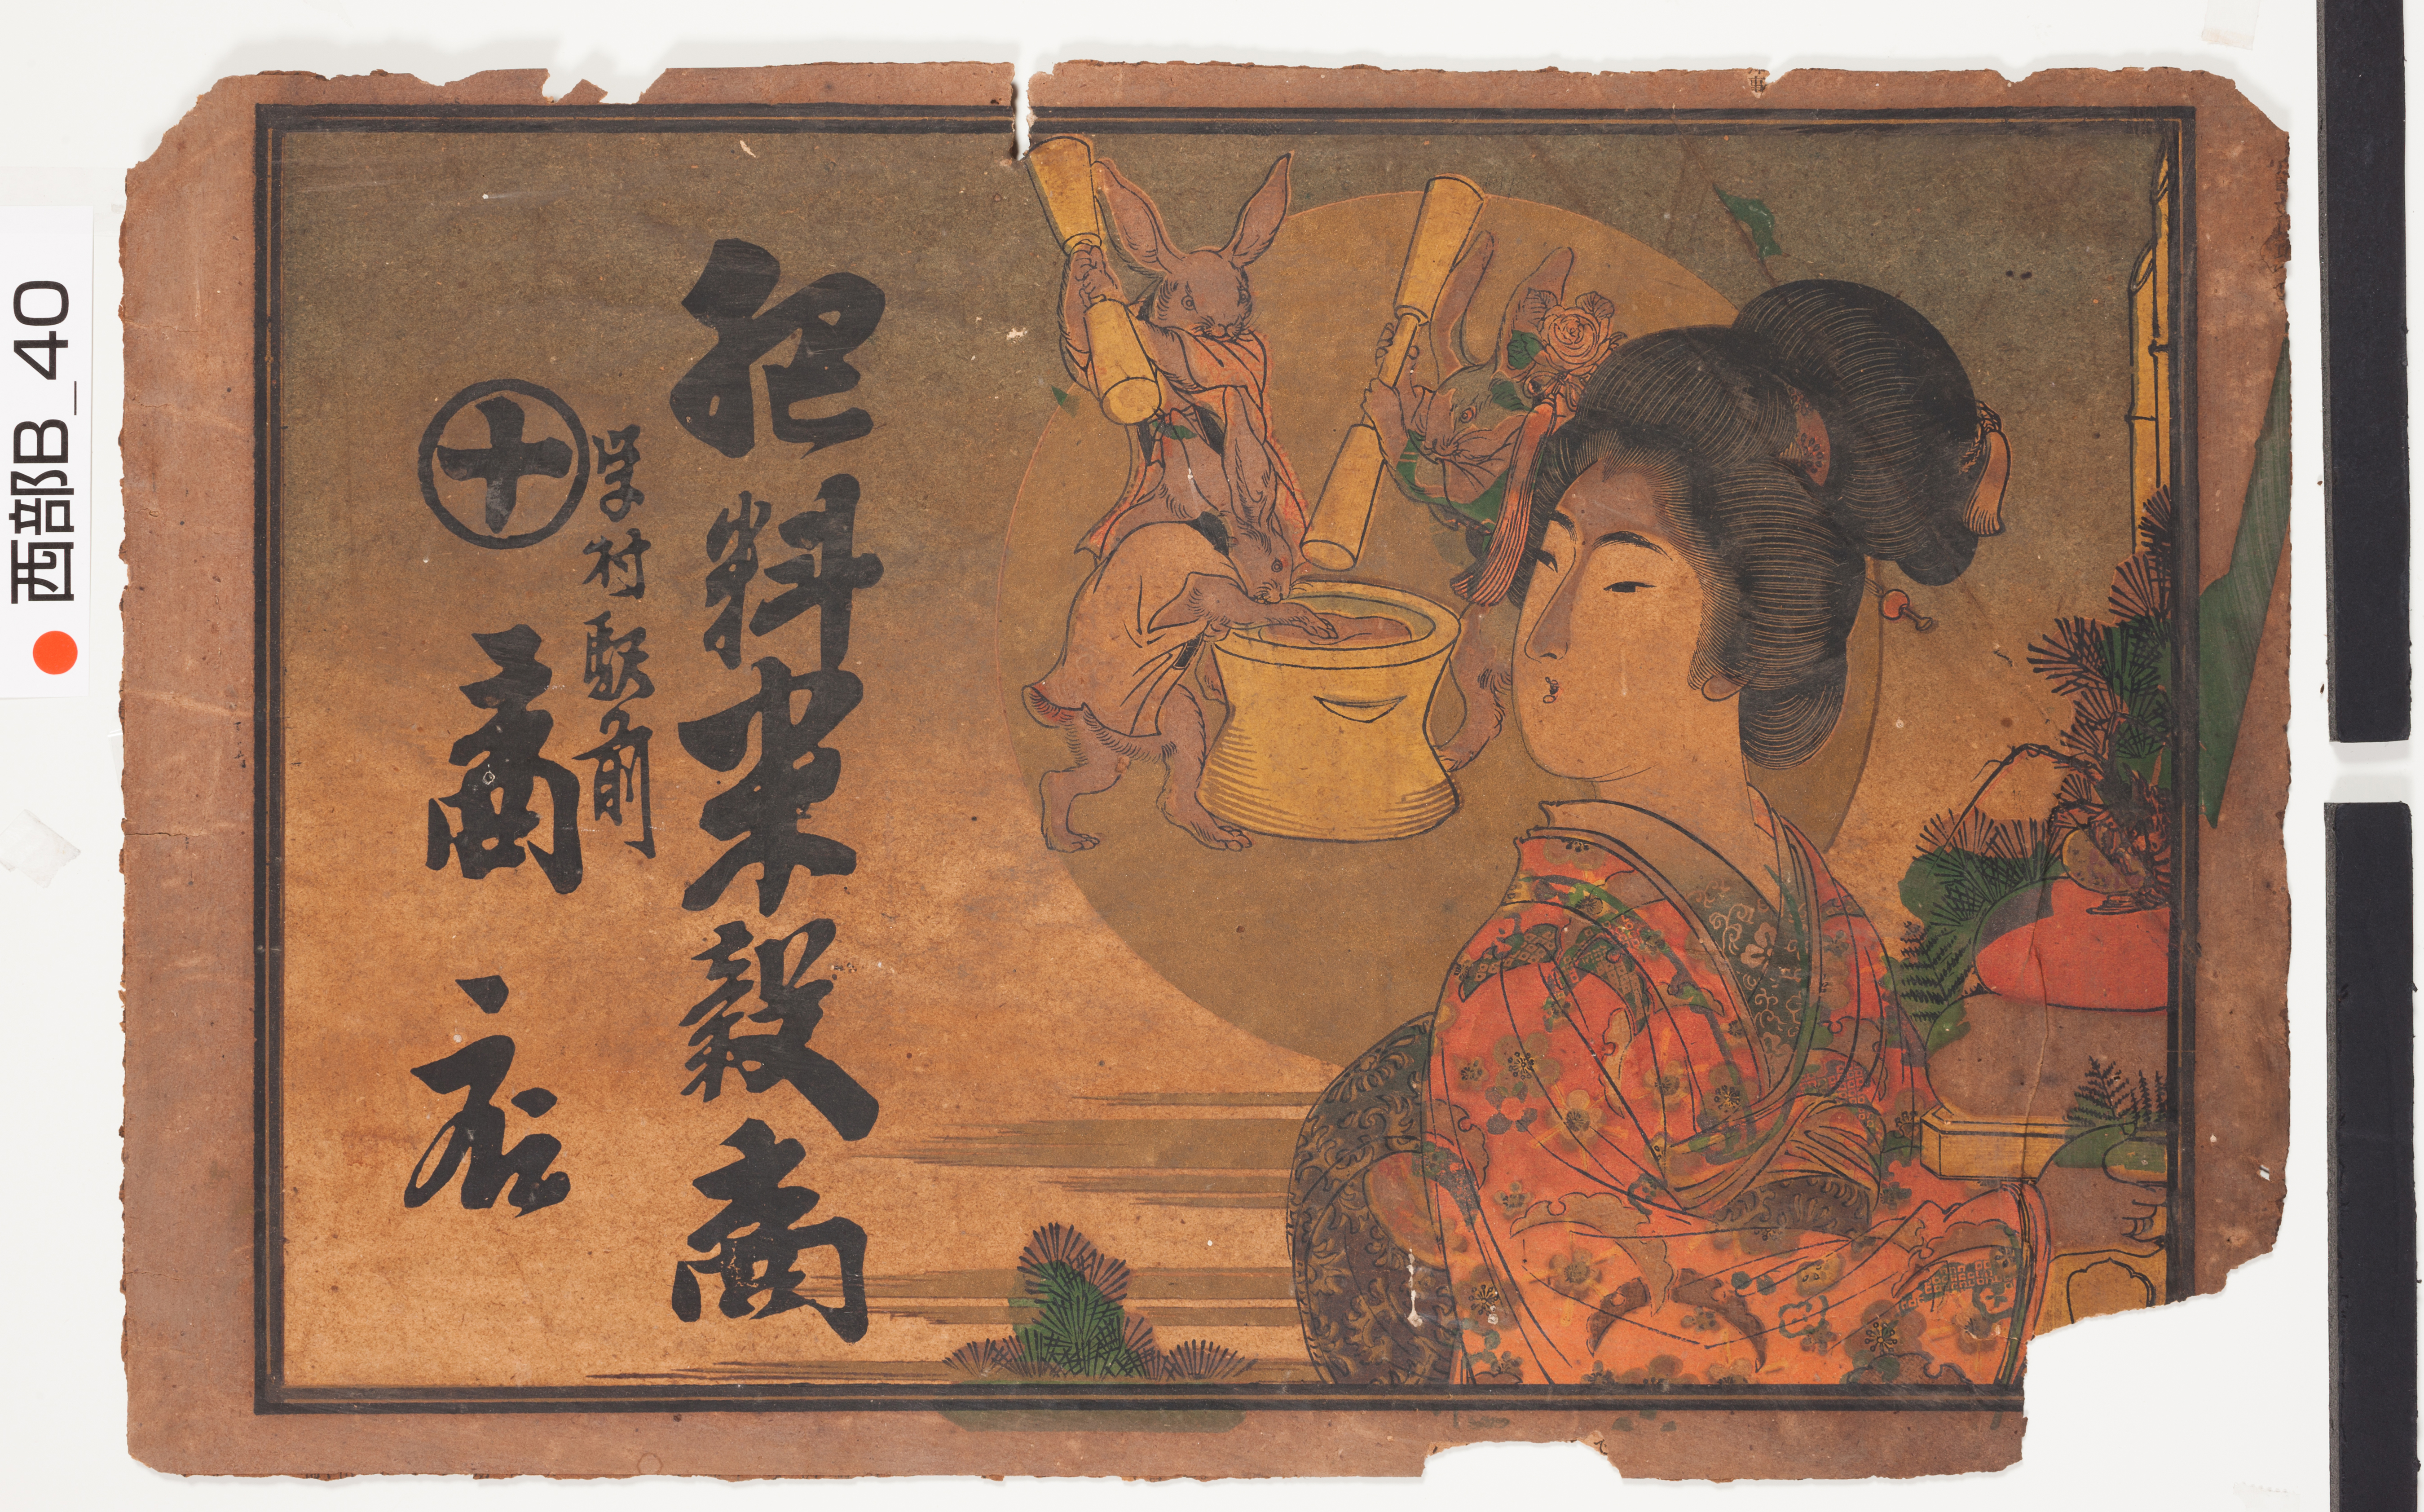 肥料米穀商
村駅前
十
商店
西部B_40